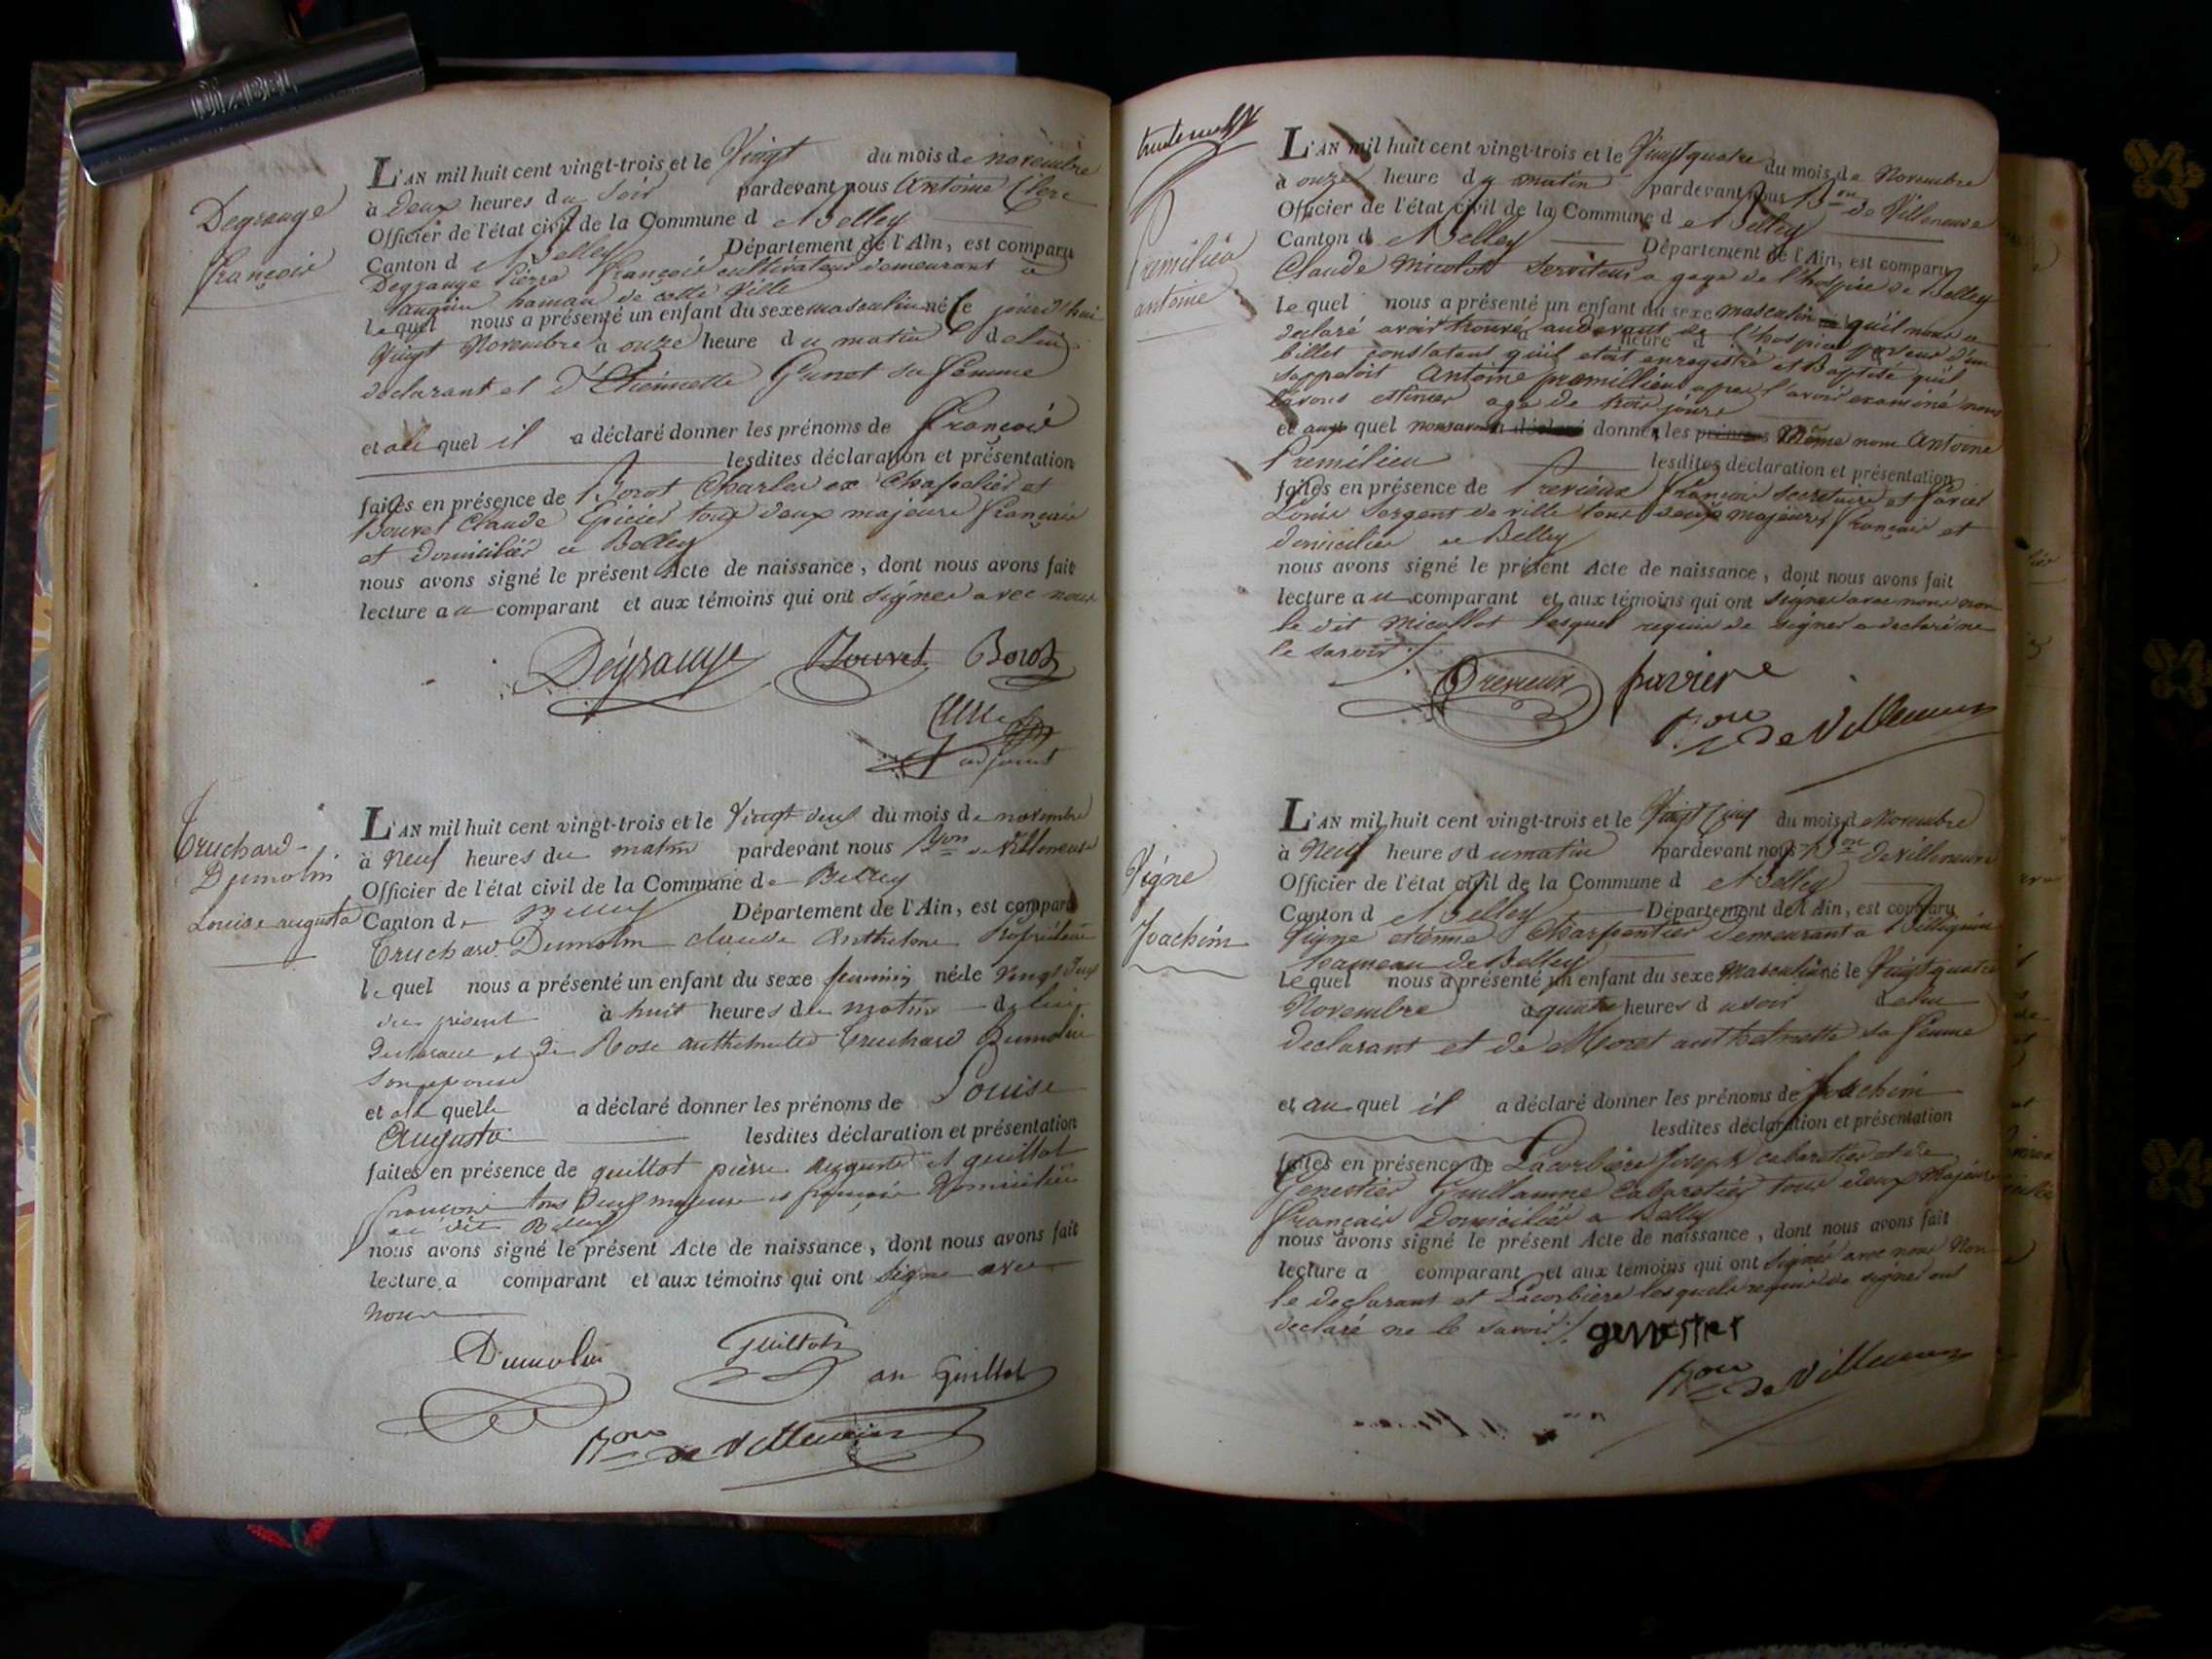 Degrange
François
L'AN mil huit cent vingt-trois et le Vingt du mois de novembre
à deux heures du Soir pardevant nous Antoine Clerc
Officier de l'état civil de la Commune d e Belley
Canton d e Belley Département de l'Ain, est comparu
Degrange Pierre François cultivateur demeurant a
hamau de cette Ville
le quel nous a présenté un enfant du sexe masculin né le jourd'hui
Vingt Novembre à onze heure du matin de lui
declarant et d'Etiennette Gunet sa femme
et au quel il a déclaré donner les prénoms de François
lesdites déclaration et présentation
faites en présence de Borot Charles ex Chapelier et
Bouvet Claude Epicier tous deux majeurs français
et domiciliés a Belley
nous avons signé le présent Acte de naissance, dont nous avons fait
lecture au comparant et aux témoins qui ont signés avec nous
Degrange Bouvet Borot
Clerc
adjoint
Truchard-
Dumolin
Louise augusta
L'AN mil huit cent vingt-trois et le Vingt deux du mois de novembre
à Neuf heures du matin pardevant nous Bon de Villeneuve
Officier de l'état civil de la Commune de Belley
Canton de Belley Département de l'Ain, est comparu
Truchard Dumolin claude Anthelme Propriétaire
le quel nous a présenté un enfant du sexe feminin né le Vingt deux
du présent à huit heures du matin de lui
declarant et de Rose anthelmette Truchard Dumolin
son epouse
et a la quelle a déclaré donner les prénoms de Louise
Augusta lesdites déclaration et présentation
faites en présence de guillot pierre auguste et guillot
francois tous deux majeurs et français domiciliés
au dit Belley
nous avons signé le présent Acte de naissance, dont nous avons fait
lecture a comparant et aux témoins qui ont signé avec
nous
Dumolin Guillot
an Guillot
Bon de Villeneuve
Premilieu
antoine
L'AN mil huit cent vingt-trois et le Vingt quatre du mois de Novembre
à onze heure du matin pardevant nous Bon de Villeneuve
Officier de l'état civil de la Commune d e Belley
Canton d e Belley Département de l'Ain, est comparu
Claude Micolot serviteur a gage de l'hospice de Belley
Le quel nous a présenté un enfant du sexe masculin qu'il nous a
declaré avoir trouvé audevant de l'hospice porteur d'un
heure d
billet constatant qu'il etait enregistré et Baptisé qu'il
sappeloit Antoine premillieu apres l'avoir examiné nous
l'avons estimer agé de trois jours
et au quel nous avons déclaré donner les prénoms Même nom Antoine
Premilieu lesdites déclaration et présentation
faites en présence de Previeux François secretaire et
Louis Sergent de ville tous deux majeurs français et
domicilies a Belley
nous avons signé le présent Acte de naissance, dont nous avons fait
lecture au comparant et aux témoins qui ont signé avec nous non
le dit Micollot lesquel requis de signer a declaré ne
le savoir
Previeux
Bon de Villeneuve
Vigne
Joachim
L'AN mil huit cent vingt-trois et le Vingt Cinq du mois de Novembre
à Neuf heures du matin pardevant nous Bon de Villeneuve
Officier de l'état civil de la Commune d e Belley
Canton d e Belley Département de l'Ain, est comparu
Vigne etienne Charpentier demeurant a Billignin
hameau de Belley
Le quel nous a présenté un enfant du sexe Masculin né le Vingt quatre
Novembre à quatre heures du soir de lui
declarant et de Moret anthelmette sa femme
et au quel il a déclaré donner les prénoms de Joachim
lesdites déclaration et présentation
faites en présence de Lacorbière Joseph cabaretier et de
Genestier Guillaume Cabaretier tous deux Majeurs
Français Domiciliés a Belley
nous avons signé le présent Acte de naissance, dont nous avons fait
lecture a comparant et aux témoins qui ont signé avec nous Non
le declarant et Lacorbière lesquels requis de signer ont
declaré ne le savoir
Bon de Villeneuve